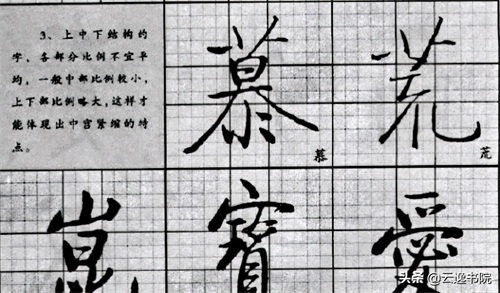 3、上中下结构的
字，各部分比例不宜平
均，一般中部比例较小，
上下部比例略大，这样才
能体现出中宫紧缩的特
点。
慕 荒
慕 荒
寶 愛
头条 @云逸书院